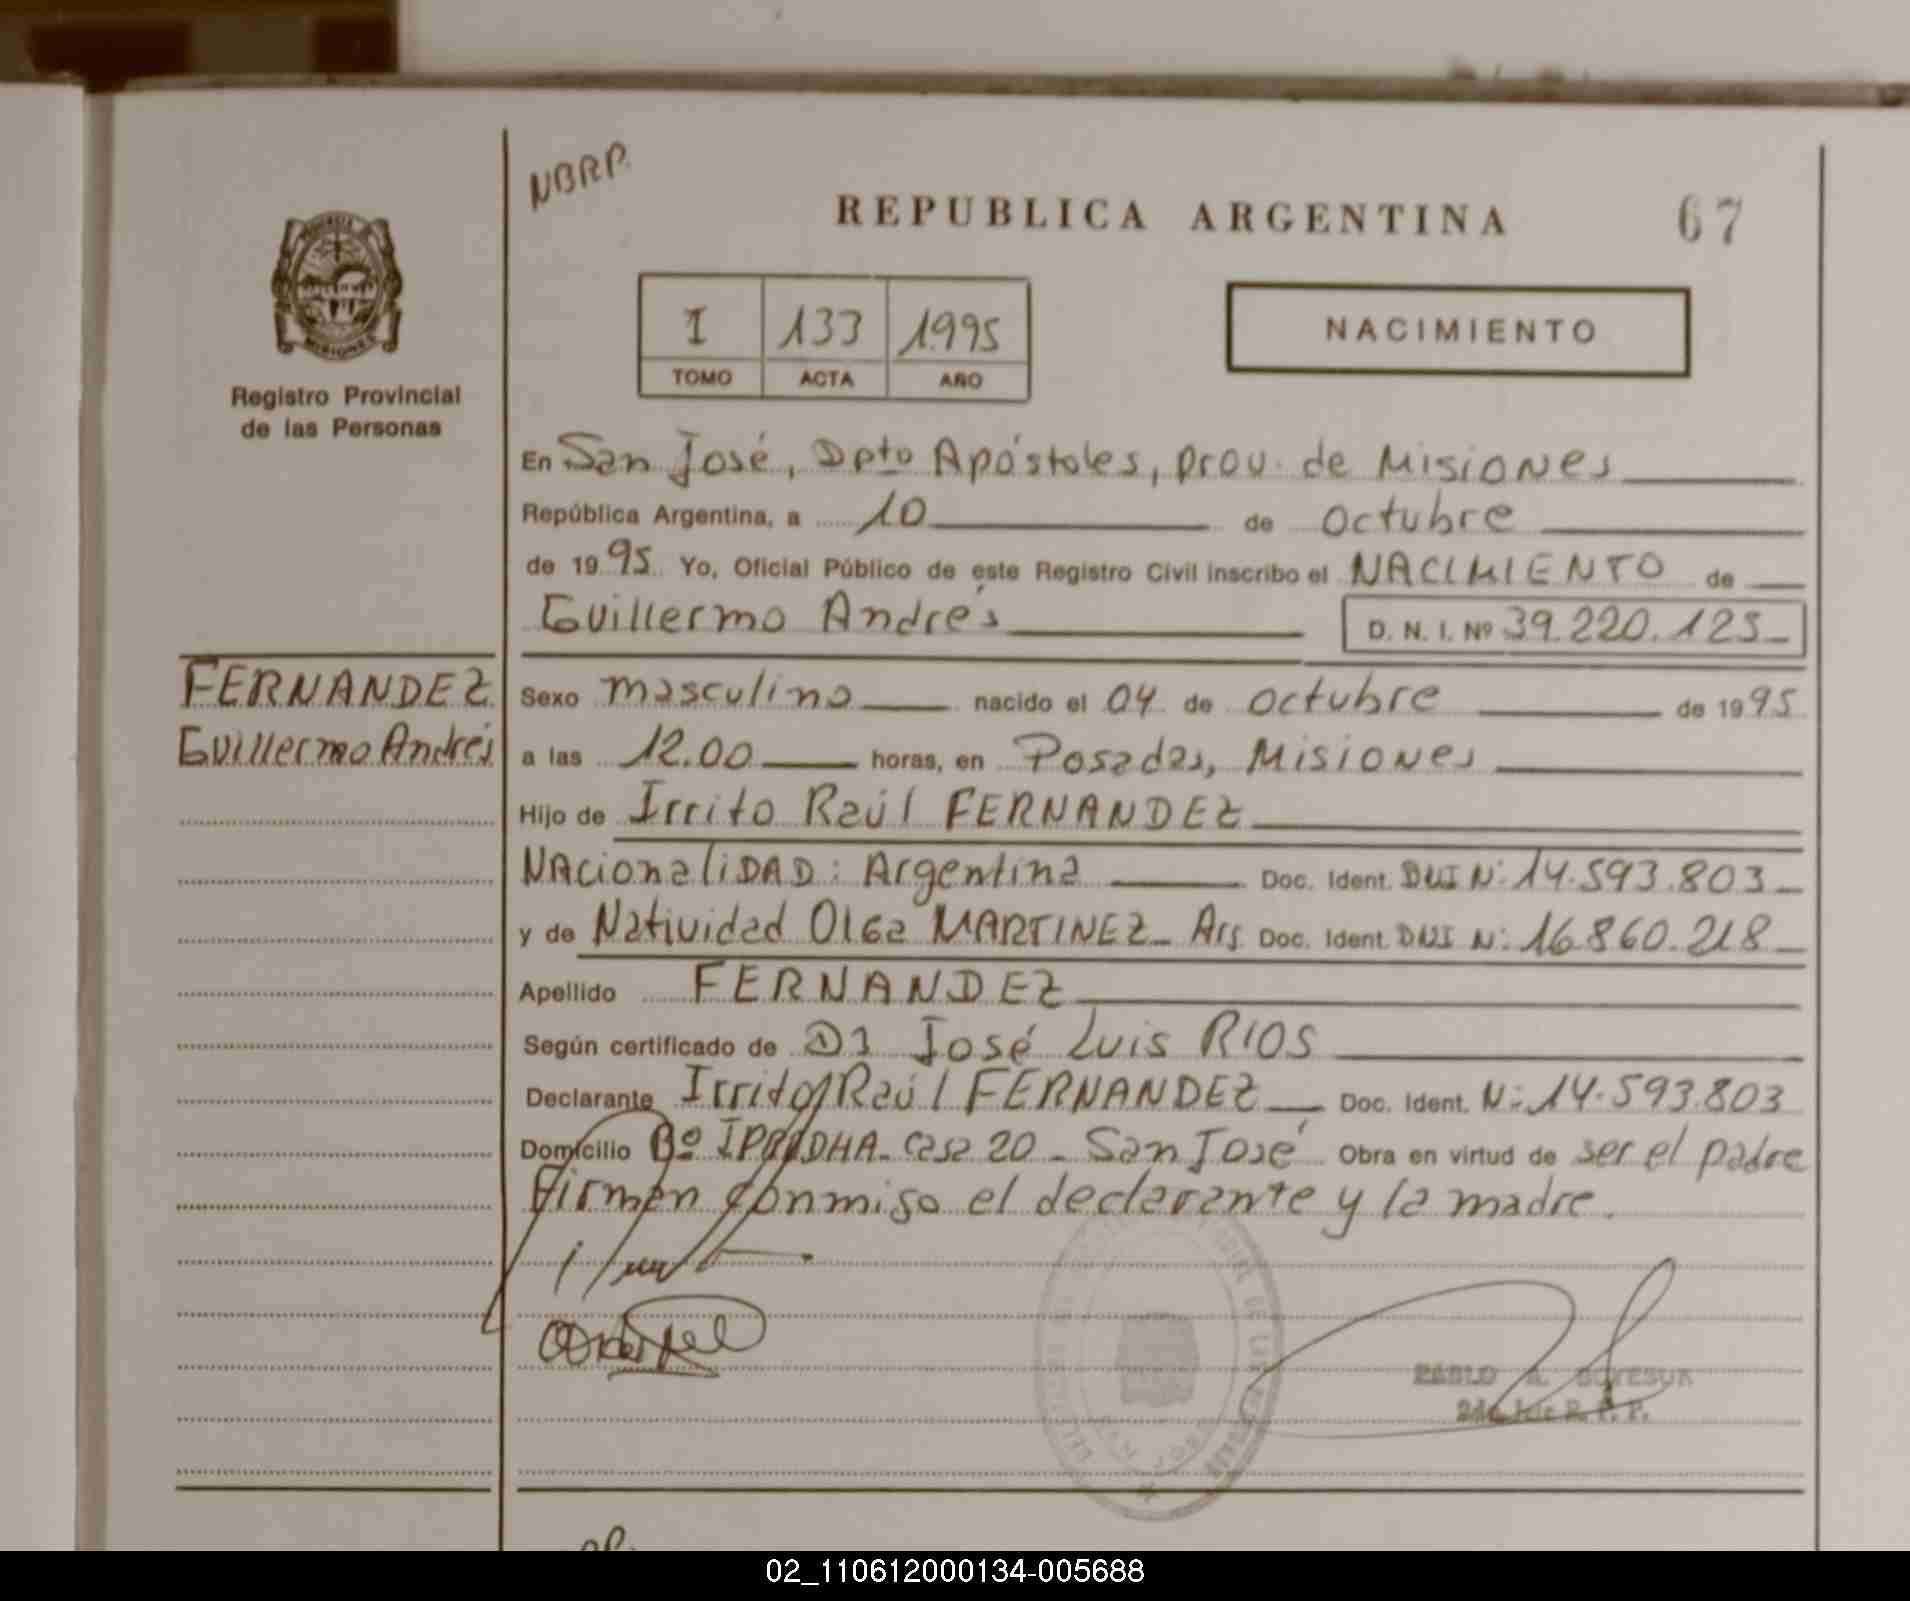 NBRP.
REPUBLICA ARGENTINA
67
MISIONES
Registro Provincial
de las Personas
I 133 1995
TOMO ACTA AÑO
NACIMIENTO
En San José, Dpto Apóstoles, prov. de Misiones
República Argentina, a 10 de octubre
de 1995 Yo, Oficial Público de este Registro Civil inscribo el NACIMIENTO de
Guillermo Andrés D. N. I. Nº 39.220.125
FERNANDEZ
Guillermo Andrés
Sexo masculino nacido el 04 de octubre de 1995
a las 12.00 horas, en Posadas, Misiones
Hijo de Irrito Raúl FERNANDEZ
Nacionalidad: Argentina Doc. Ident. DNI N: 14.593.803
y de Natividad Olga MARTINEZ Arg Doc. Ident. DNI N: 16.860.218
Apellido FERNANDEZ
Según certificado de José Luis RIOS
Declarante Irrito Raúl FERNANDEZ Doc. Ident. N: 14.593.803
Domicilio Bº IPRODHA casa 20 - San José Obra en virtud de ser el padre
Firman conmigo el declarante y la madre.
PABLO A.
R. P. P.
02_110612000134-005688